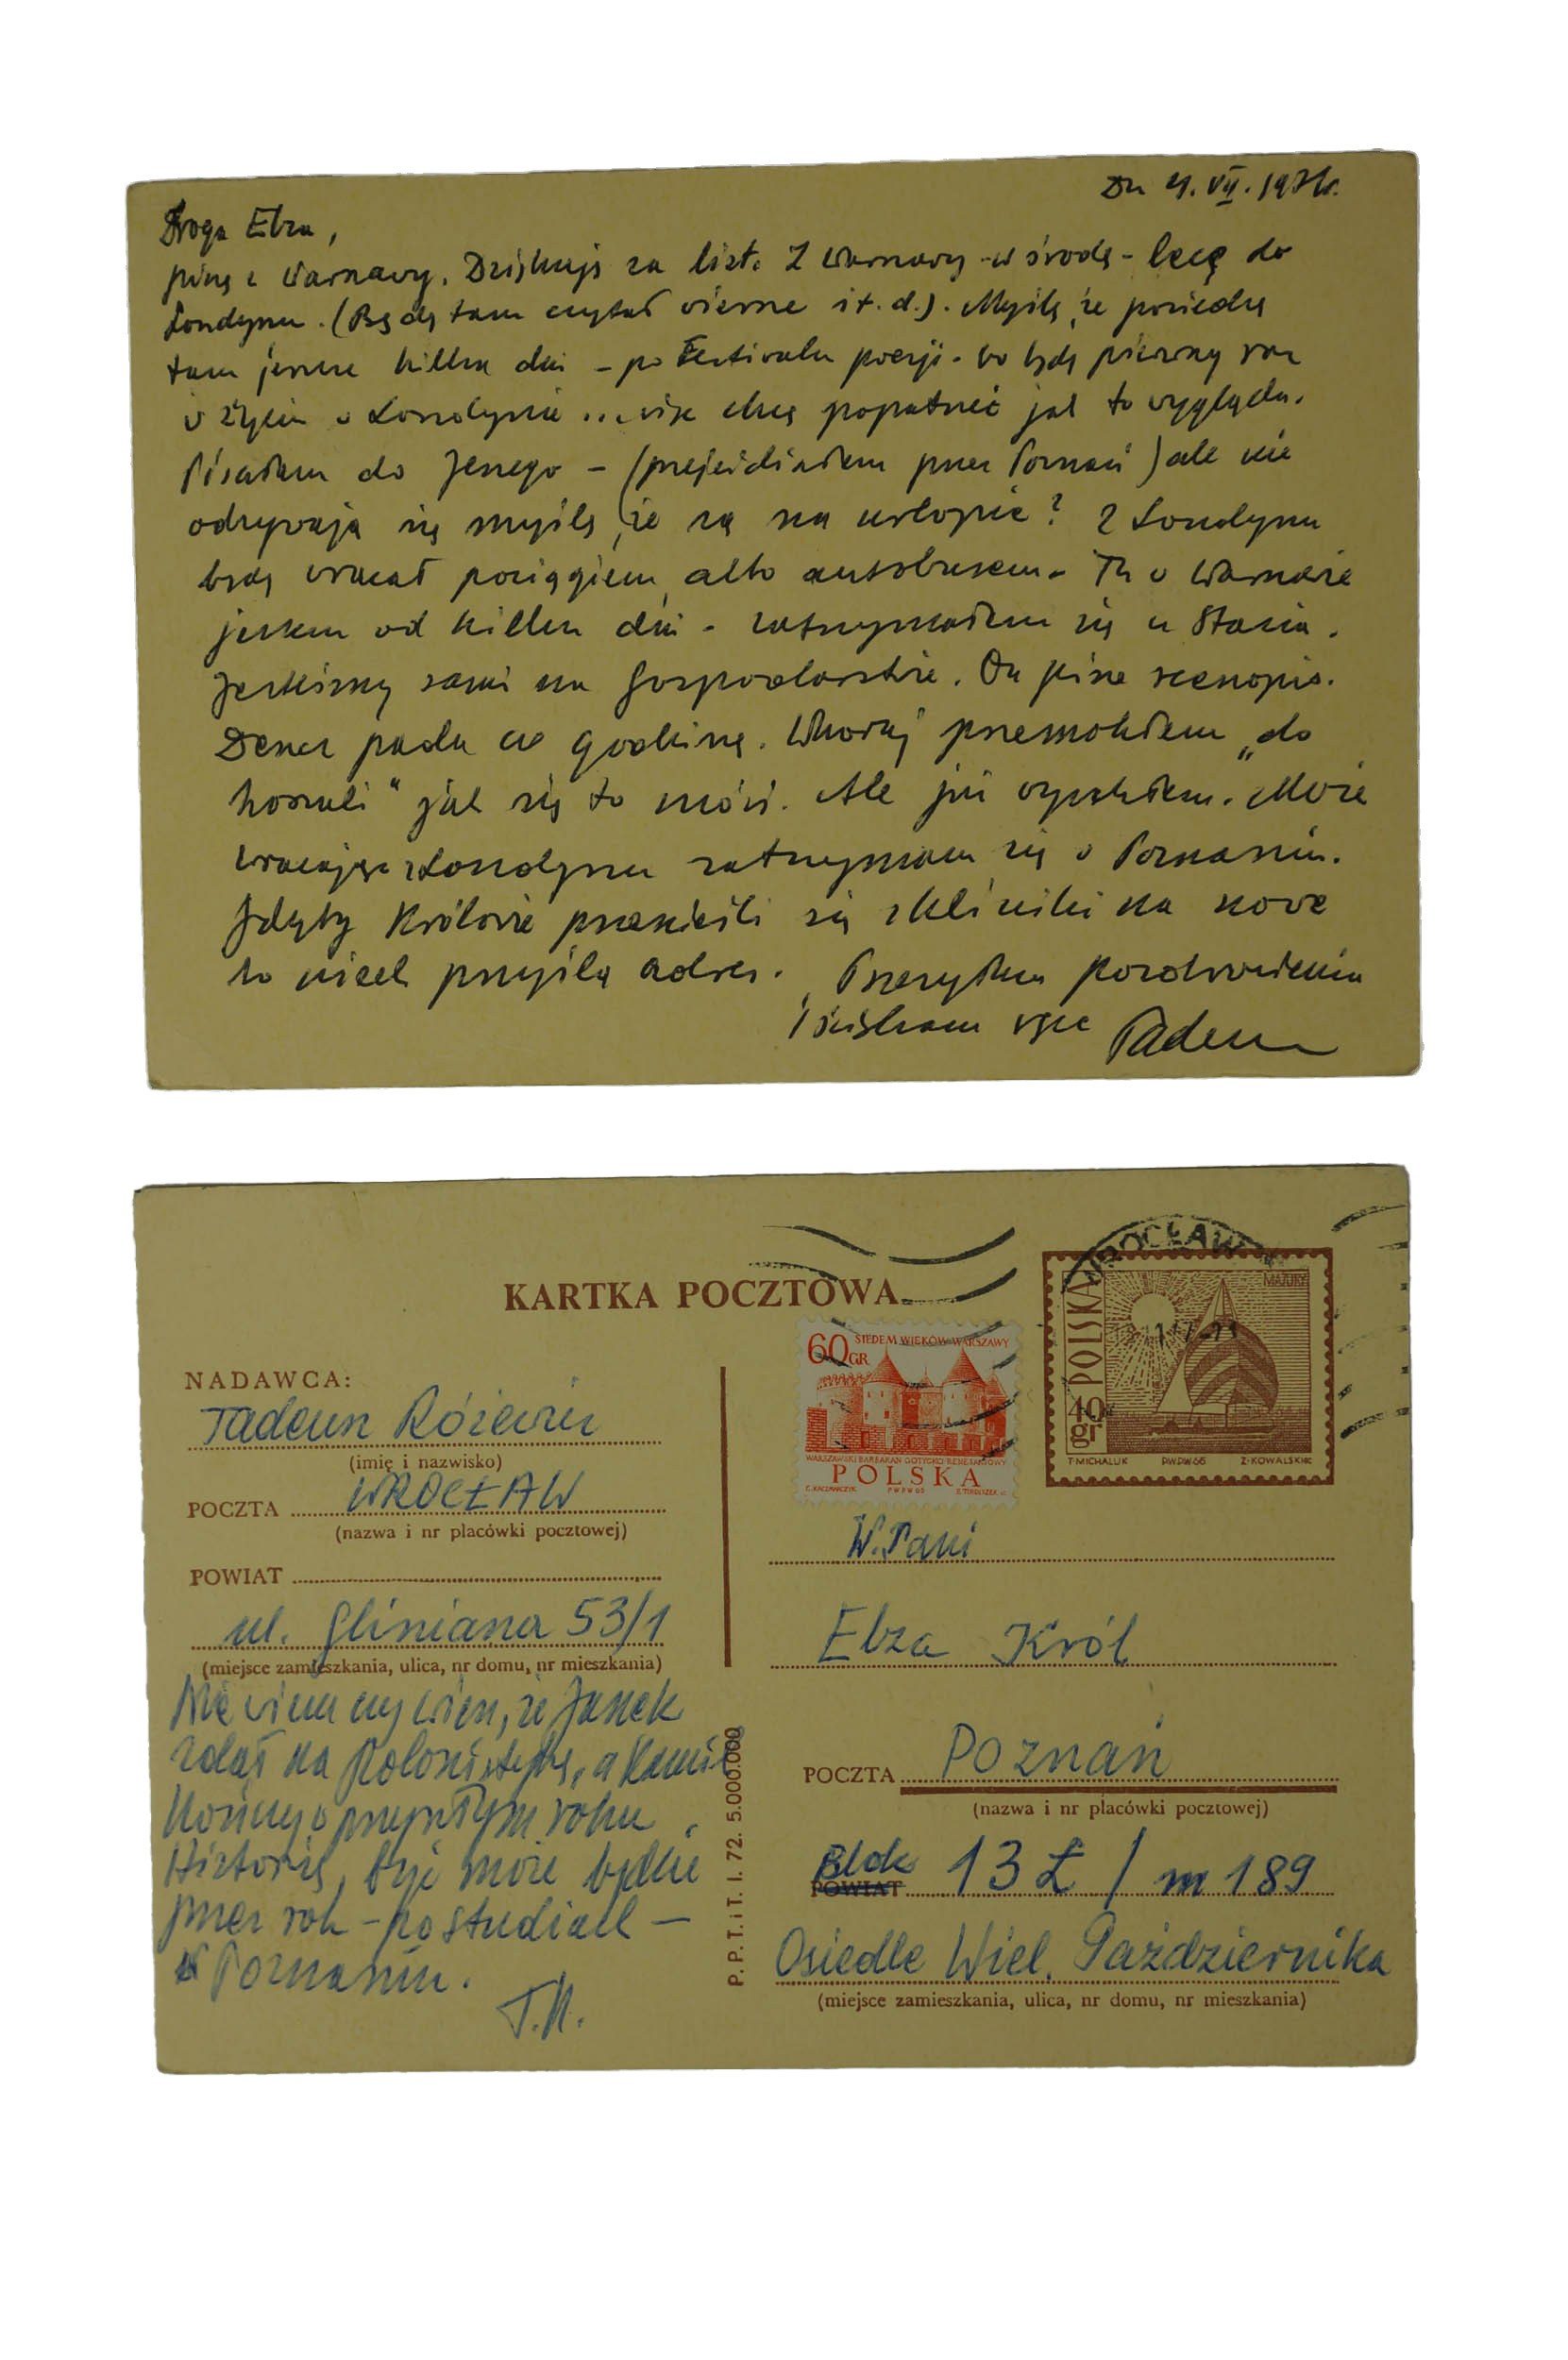 Droga Elza,
piszę z Warszawy. Dziękuję za list. Z Warszawy – w środę – lecę do
Londynu. (Będę tam czytał wiersze i t. d.). Myślę, że posiedzę
tam jeszcze kilka dni – po Festivalu poezji. bo będę pierwszy raz
w życiu w Londynie ... więc chcę popatrzeć jak to wygląda.
Pisałem do Jerzego – (przejeżdżałem przez Poznań) ale nie
odzywają się myślę, że są na urlopie? Z Londynu
będę wracał pociągiem albo autobusem. Tu w Warszawie
jestem od kilku dni – zatrzymałem się u Stasia.
Jesteśmy sami na gospodarstwie. On pisze scenopis.
Deszcz pada co godzinę. Wczoraj przemokłem „do
koszuli" jak się to mówi. Ale już wyschłem. Może
wracając z Londynu zatrzymam się w Poznaniu.
Gdyby Królowie przenieśli się z kliniki na nowe
to niech przyślą adres. Wszystkim pozdrowienia
i ściskam ręce Tadeusz
KARTKA POCZTOWA
WROCŁAW
POLSKA
MAZURY
40 gr
T. MICHALUK P.W.P.W. 66 Z. KOWALSKI sc.
60 GR
SIEDEM WIEKÓW WARSZAWY
WARSZAWSKI BARBAKAN GOTYCKO-RENESANSOWY
POLSKA
NADAWCA:
Tadeusz Różewicz
(imię i nazwisko)
POCZTA WROCŁAW
(nazwa i nr placówki pocztowej)
POWIAT
ul. Gliniana 53/1
(miejsce zamieszkania, ulica, nr domu, nr mieszkania)
Nie wiem czy wiesz, że Janek
zdał na Polonistykę, a Kamil
kończy w przyszłym roku
Historię, być może będzie
przez rok – po studiach –
w Poznaniu.
T.R.
P. P. T. i T. I. 72. 5.000.000
W. Pani
Elza Król
POCZTA Poznań
(nazwa i nr placówki pocztowej)
Blok
POWIAT 13 Ł / m 189
Osiedle Wiel. Października
(miejsce zamieszkania, ulica, nr domu, nr mieszkania)